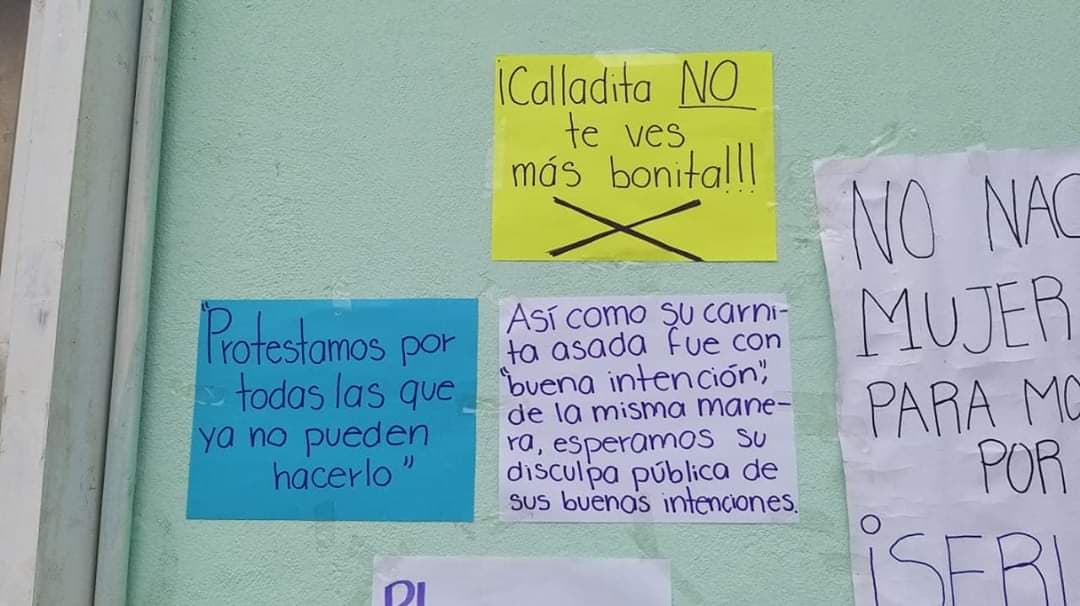 ¡Calladita NO
te ves
más bonita!!!
"Protestamos por
todas las que
ya no pueden
hacerlo"
Así como su carni-
ta asada fue con
"buena intención",
de la misma mane-
ra, esperamos su
disculpa pública de
sus buenas intenciones.
NO NAC
MUJER
PARA MO
POR
¡SERL